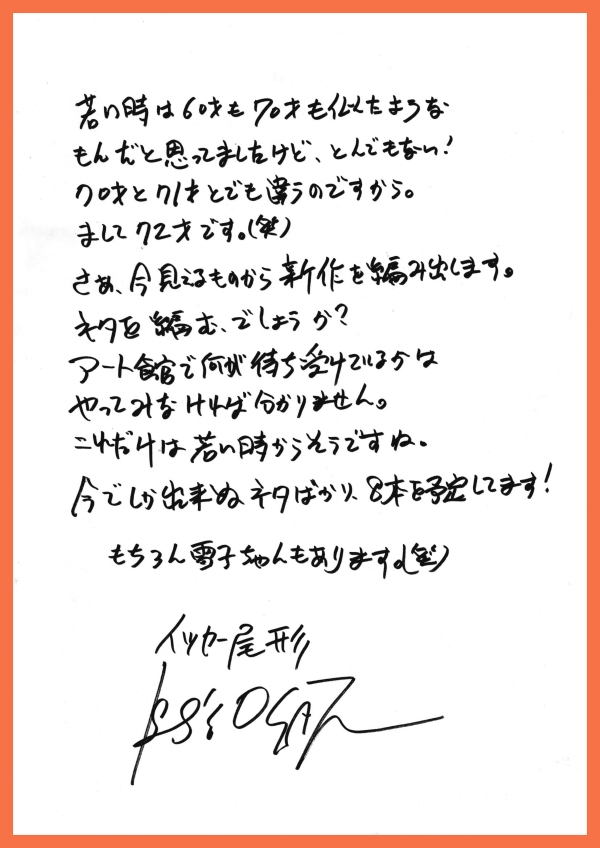 若い時は60才も70才も似たような
もんだと思ってましたけど、とんでもない!
70才と71才とでも違うのですから。
まして72才です。(笑)
さあ、今見えるものから新作を編み出します。
ネタを編む、でしょうか?
アート館で何が待ち受けているかは
やってみなければ分かりません。
これだけは若い時からそうですね。
今でしか出来ぬネタばかり、8本を予定してます!
もちろん雪子ちゃんもあります。(笑)
イッセー尾形